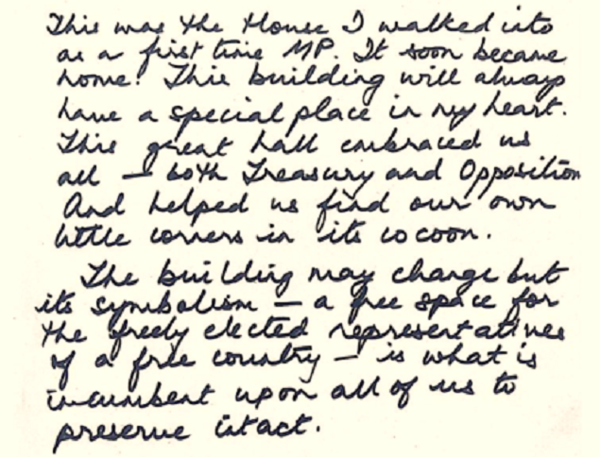 This was the House I walked into
as a first time MP. It soon became
home! This building will always
have a special place in my heart.
This great hall embraced us
all – both Treasury and Opposition
And helped us find our own
little corners in its cocoon.
The building may change but
its symbolism – a free space for
the freely elected representatives
of a free country – is what is
incumbent upon all of us to
preserve intact.